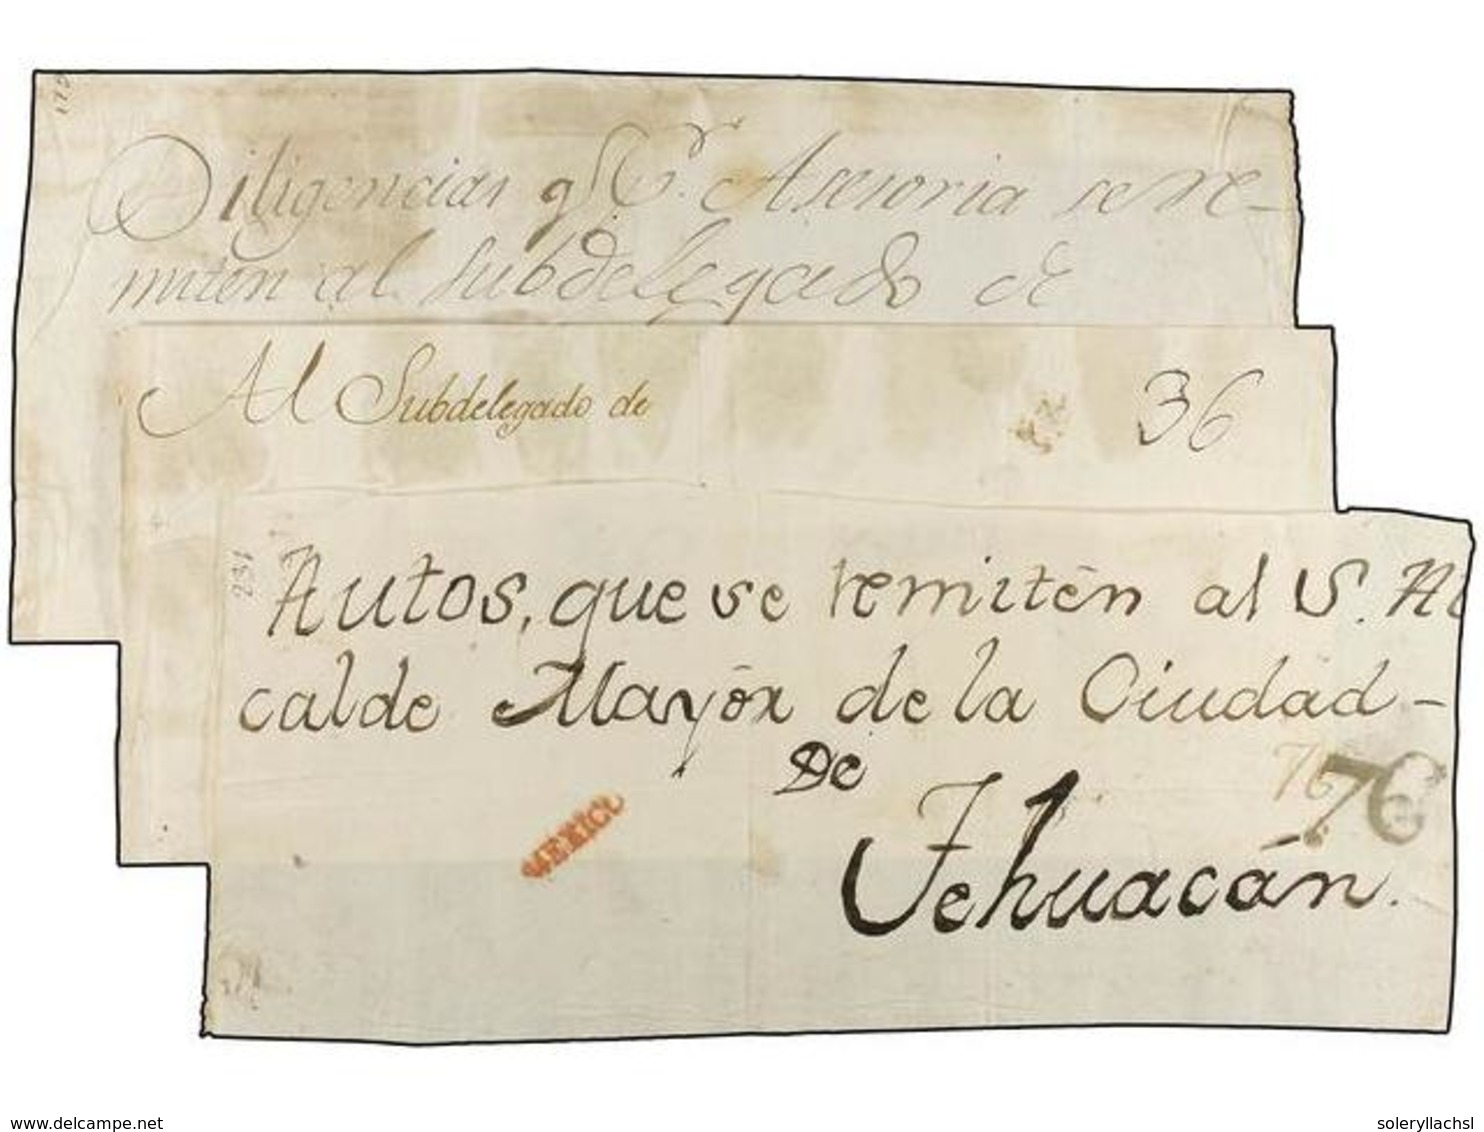 Diligencias q Sr. Asesoria se re-
miten al Subdelegado de
Al Subdelegado de
36
231
Autos, que se remitèn al S. Al
calde Mayòr de la Ciudad -
De
76 76
Tehuacán.
MEXICO
www.delcampe.net
soleryllachsl